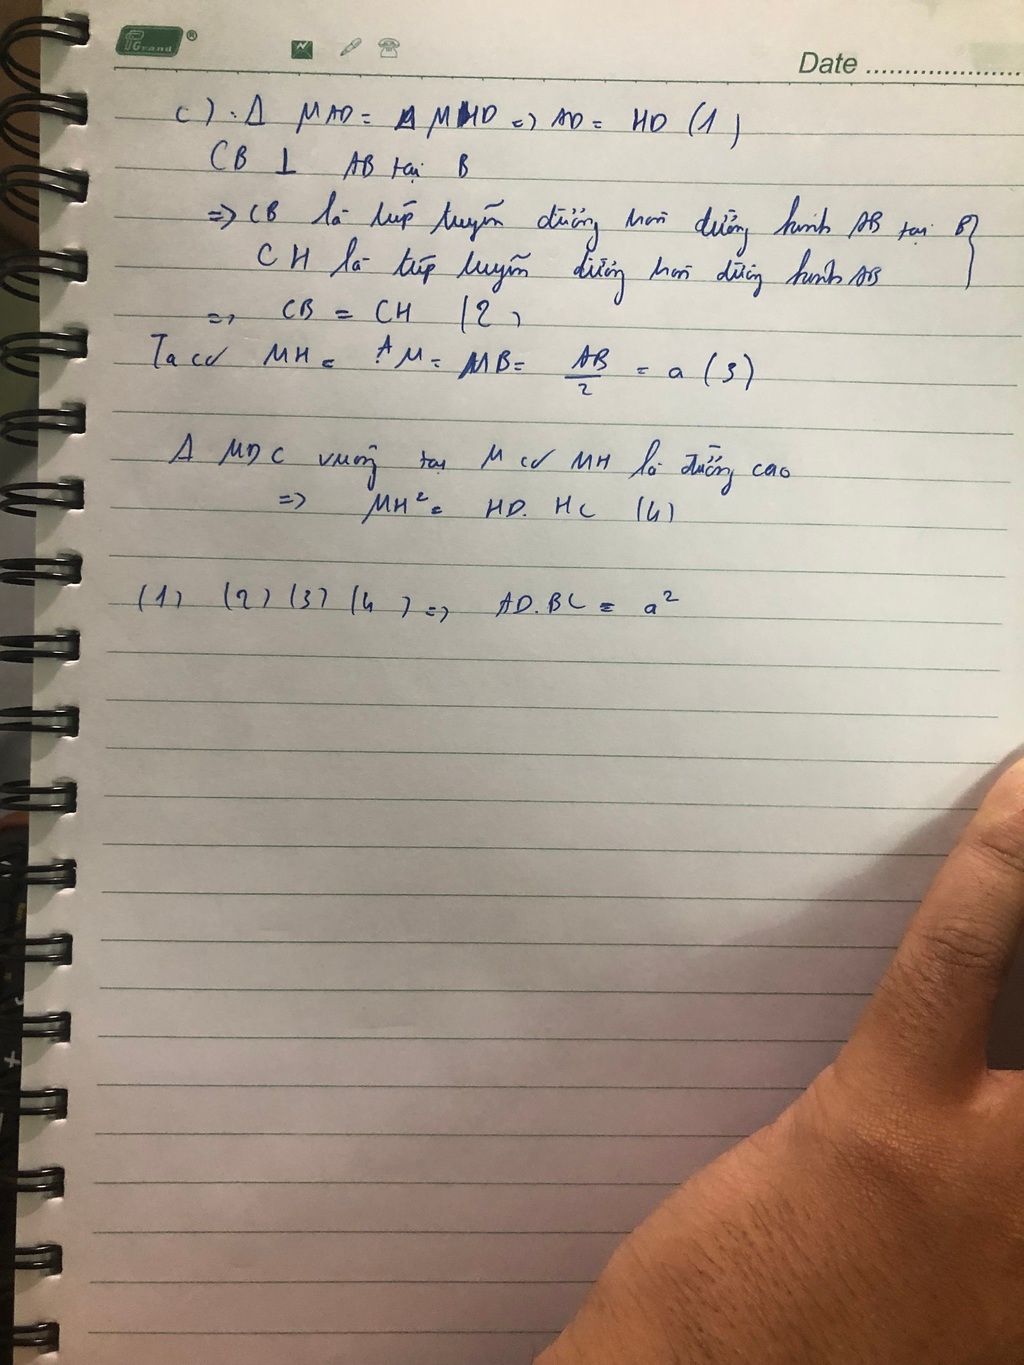 PGrand ®
Date ....................
c) . Δ MAD = Δ MHD => AD = HD (1)
CB ⊥ AB tại B
=> CB là tiếp tuyến đường tròn đường kính AB tại B }
CH là tiếp tuyến đường tròn đường kính AB
=> CB = CH (2)
Ta có MH = AM = MB = AB/2 = a (3)
Δ MDC vuông tại M có MH là đường cao
=> MH² = HD. HC (4)
(1) (2) (3) (4) => AD.BC = a²